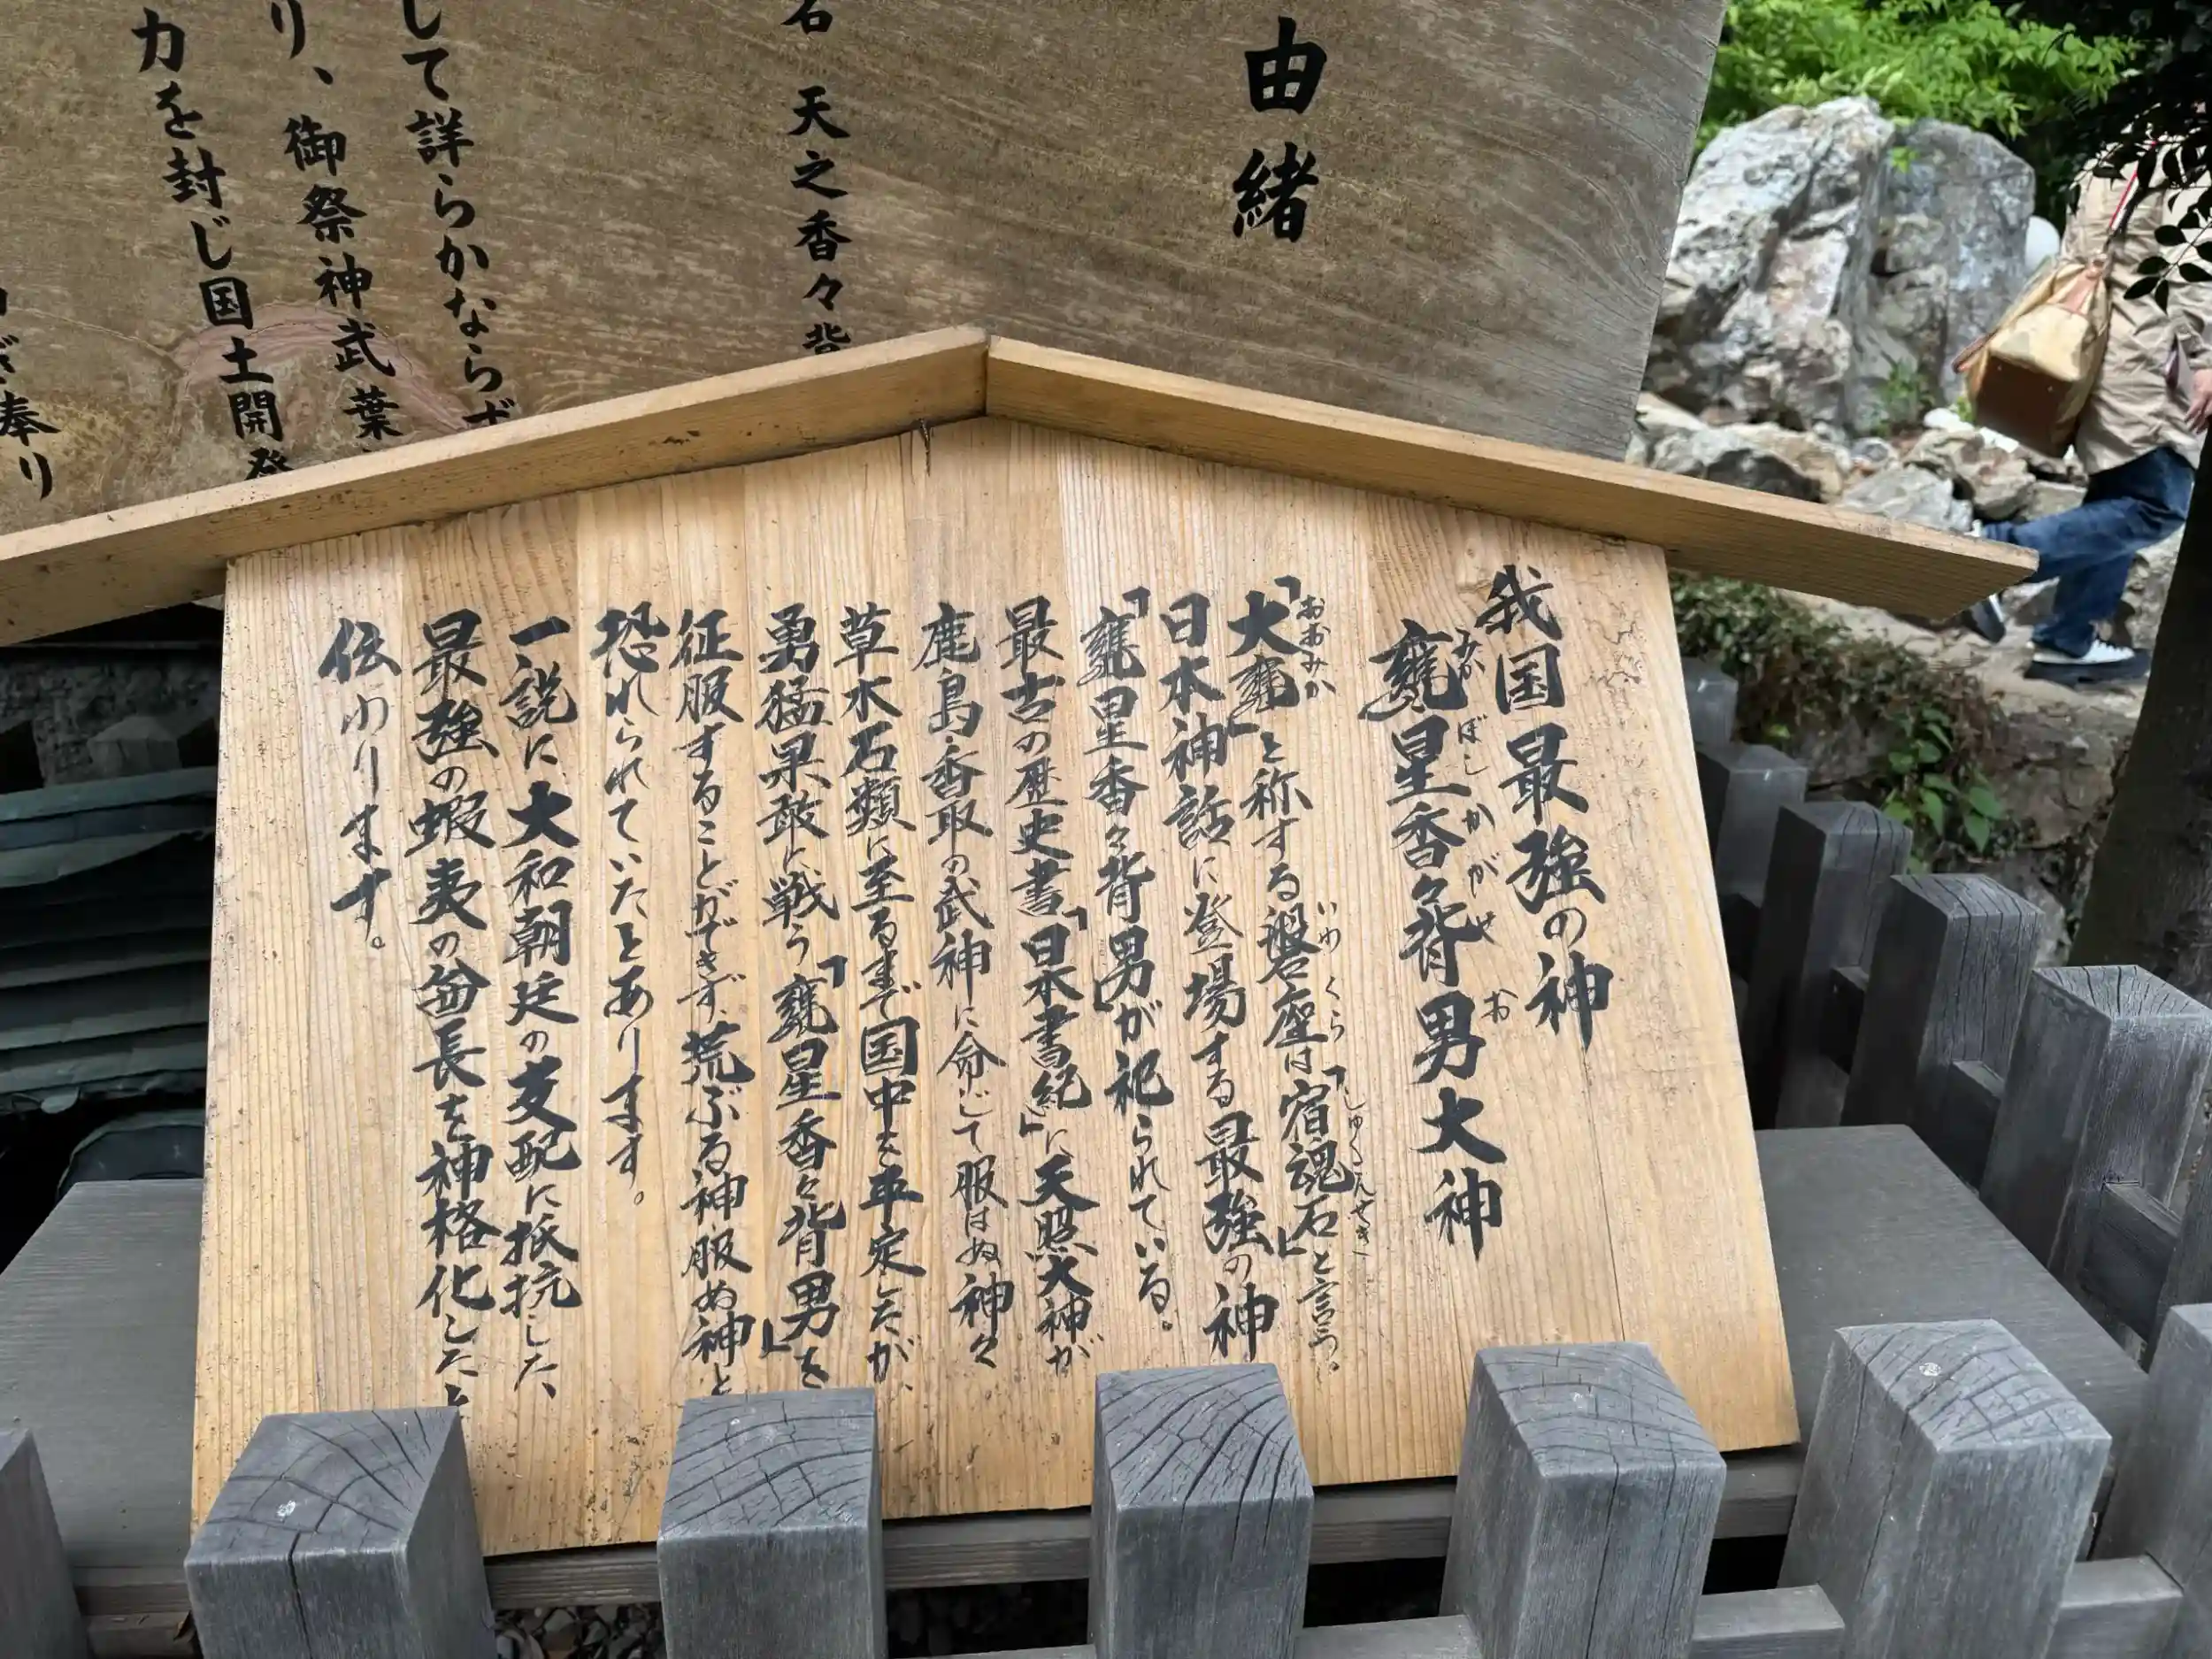 由緒
石 天之香々背
して詳らかならず
り、御祭神武葉
力を封じ国土開発
奉り
我国最強の神
甕星香々背男大神
みか ぼし か が せ お
「大甕」と称する磐座は「宿魂石」と言う。
おおみか いわくら しゅくこんせき
日本神話に登場する最強の神
「甕星香々背男」が祀られている。
最古の歴史書「日本書紀」に天照大神が
鹿島・香取の武神に命じて服はぬ神々
草木石類に至るまで国中を平定したが、
勇猛果敢に戦う「甕星香々背男」を
征服することができず、荒ぶる神服ぬ神と
恐れられていたとあります。
一説に大和朝廷の支配に抵抗した、
最強の蝦夷の酋長を神格化したと
伝わります。